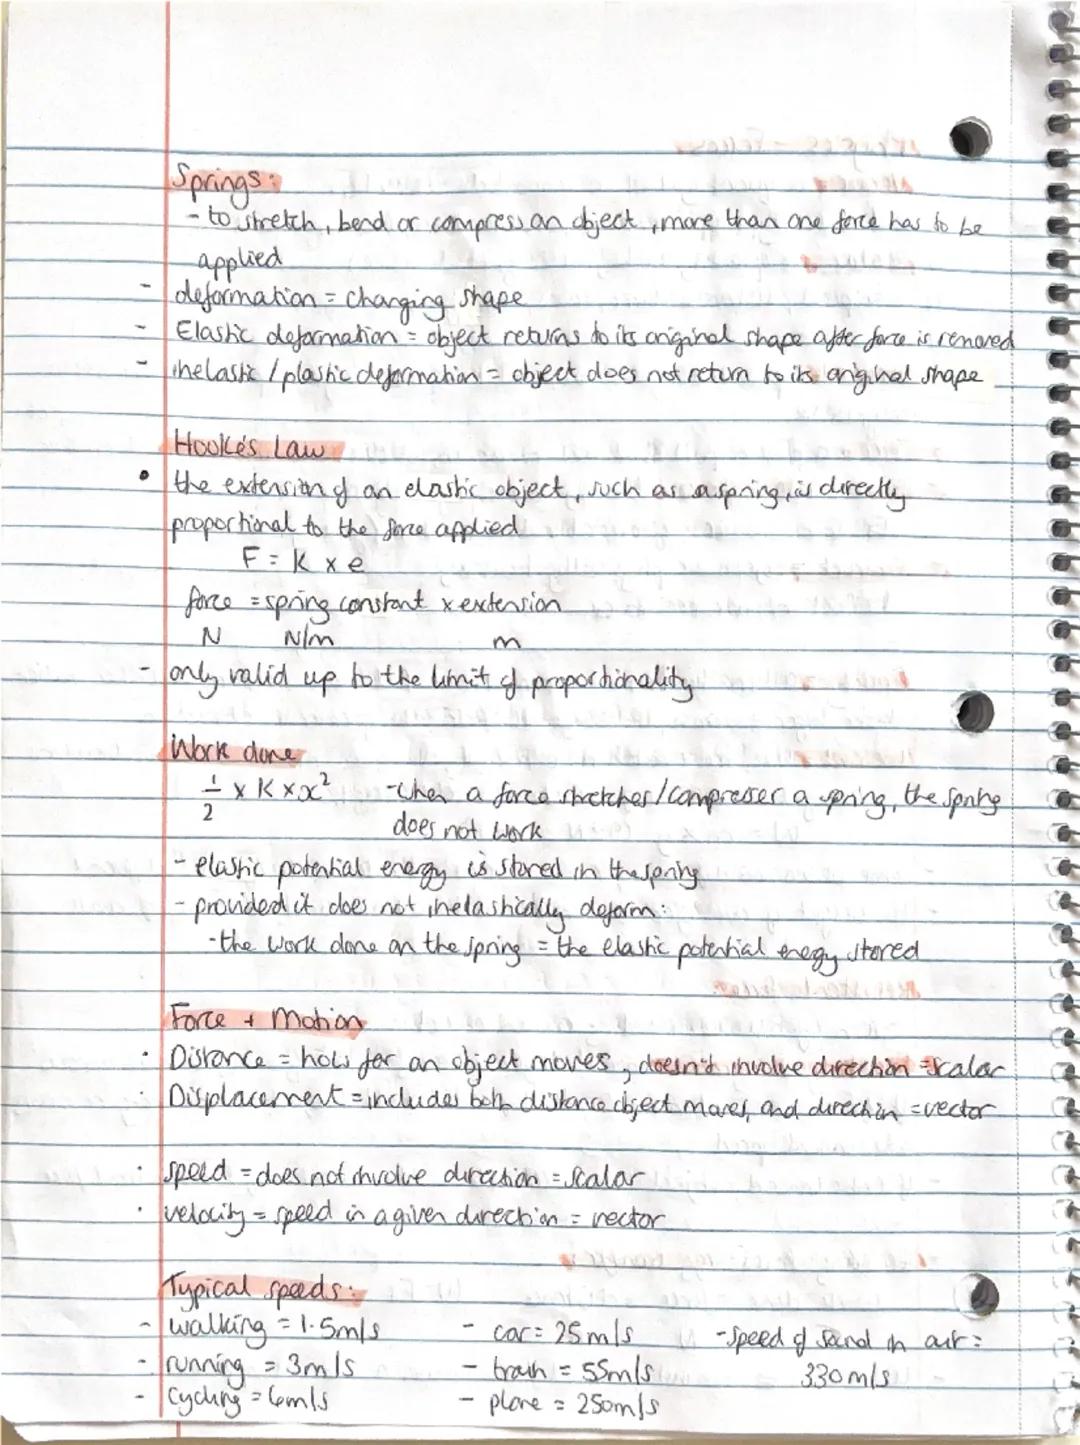 Springs:
- to stretch, bend or compress an object, more than one force has to be
applied
- deformation = changing shape
- Elastic deformation = object returns to its original shape after force is removed
- inelastic / plastic deformation = object does not return to its original shape
Hooke's Law
• the extension of an elastic object, such as a spring, is directly
proportional to the force applied
F = K x e
force = spring constant x extension
N N/m m
- only valid up to the limit of proportionality
Work done
1/2 x K x x² - when a force stretches/compresses a spring, the spring
does not work
- elastic potential energy is stored in the spring
- provided it does not inelastically deform:
- the work done on the spring = the elastic potential energy stored
Force + Motion
• Distance = how far an object moves, doesn't involve direction = scalar
• Displacement = includes both distance object moves, and direction = vector
• speed = does not involve direction = scalar
• velocity = speed in a given direction = vector
Typical speeds:
- walking = 1.5m/s - car = 25m/s - speed of sound in air =
- running = 3m/s - train = 55m/s 330m/s
- cycling = 6m/s - plane = 250m/s